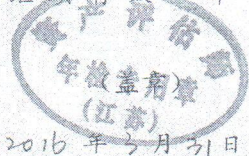 资产评估
年检专用章
(盖章)
(江苏)
2016 年 3 月 31 日